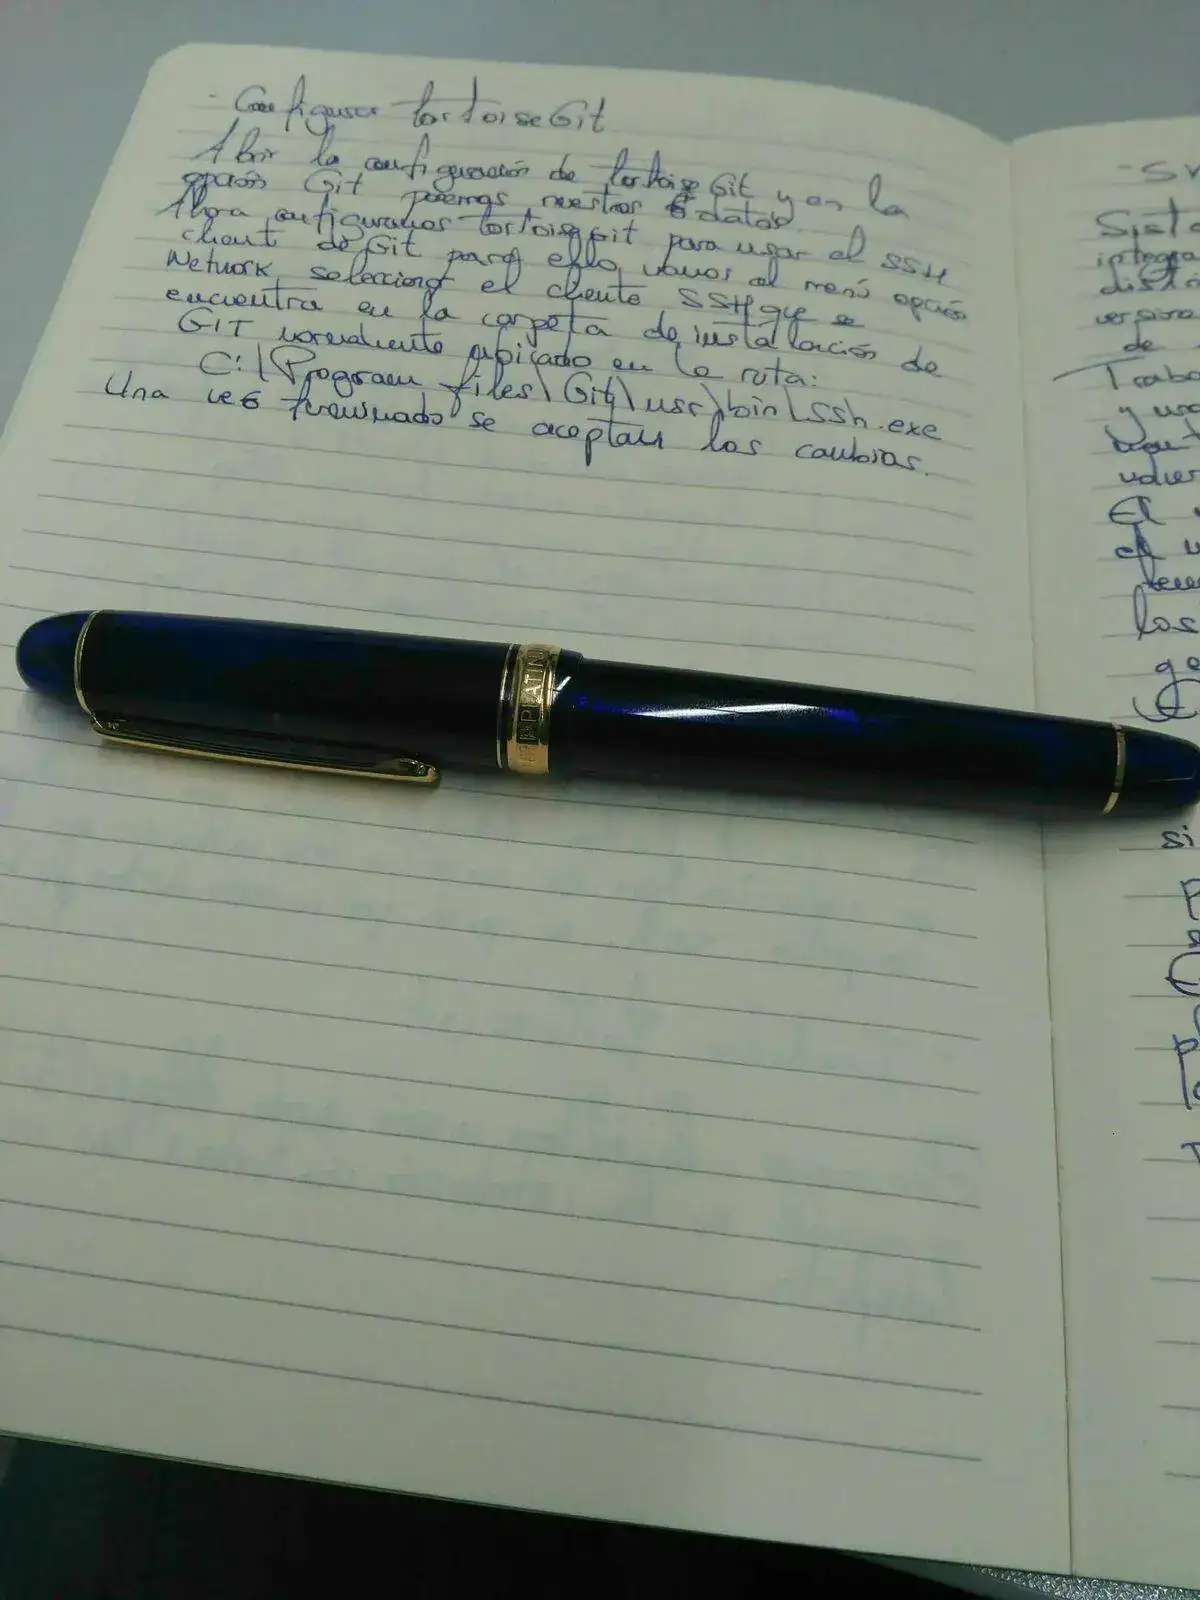 - Configurar tortoiseGit
Abrir la configuración de tortoise Git y en la
opción Git ponemos nuestros datos.
Ahora configuramos tortoisegit para usar el SSH
client de Git para ello, vamos al menú opción
Network, selecciono el cliente SSH que se
encuentra en la carpeta de instalación de
GIT normalmente ubicado en la ruta:
C:\Program files\Git\usr\bin\ssh.exe
Una vez terminado se aceptan los cambios.
PLATINU
- SV
Siste
integra
distr
version
de
Traba
y usa
volver
El
el
los
ge
si